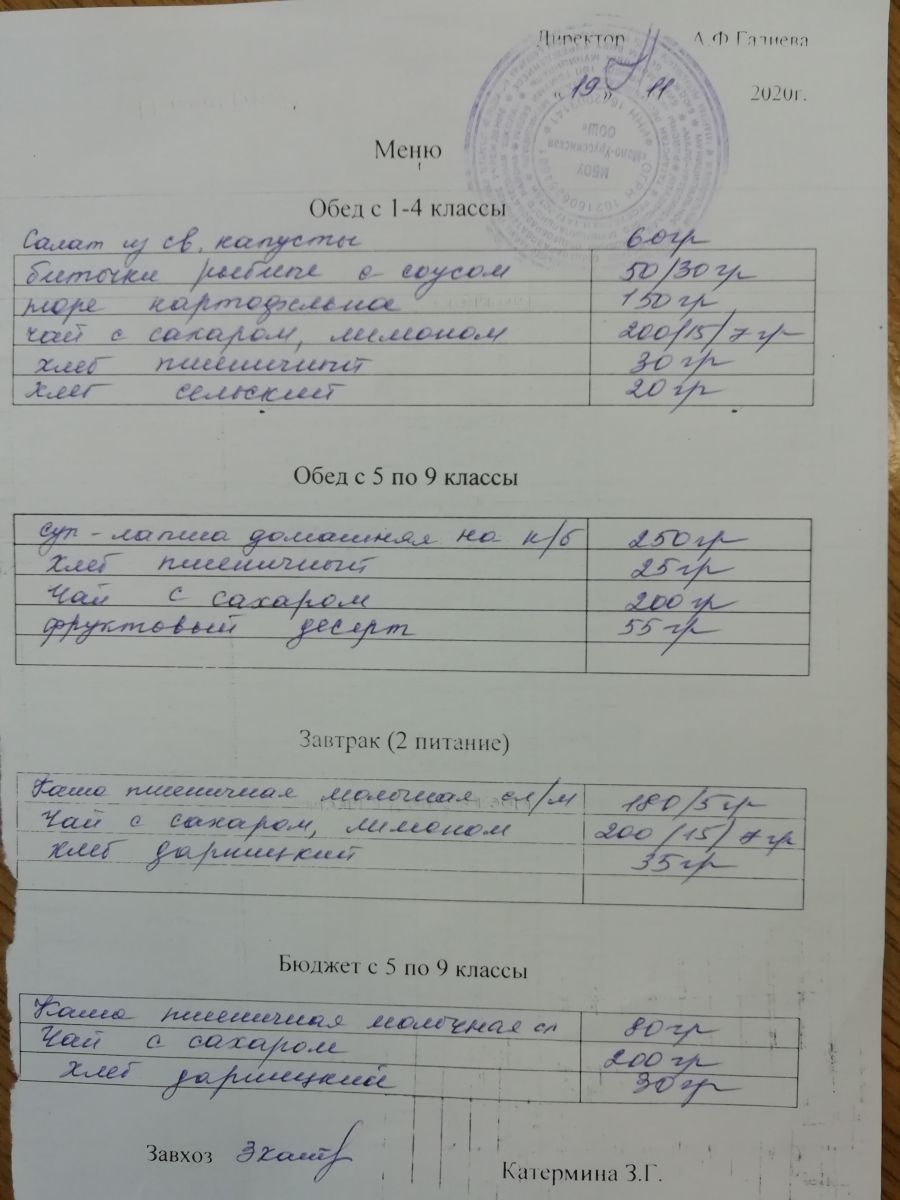 Директор А.Ф Газиева
« 19 » 11 2020г.
МБОУ
«Мало-Уруссинская
ООШ»
Меню
Обед с 1-4 классы
Салат из св. капусты 60гр
биточки рыбные с соусом 50/30гр
пюре картофельное 150гр
чай с сахаром, лимоном 200/15/7гр
хлеб пшеничный 30гр
хлеб сельский 20гр
Обед с 5 по 9 классы
суп-лапша домашняя на к/б 250гр
хлеб пшеничный 25гр
Чай с сахаром 200гр
фруктовый десерт 55гр
Завтрак (2 питание)
Каша пшеничная молочная сл/м 180/5гр
Чай с сахаром, лимоном 200/15/7гр
хлеб дарницкий 35гр
Бюджет с 5 по 9 классы
Каша пшеничная молочная сл 80гр
Чай с сахаром 200гр
хлеб дарницкий 30гр
Завхоз
Катермина З.Г.